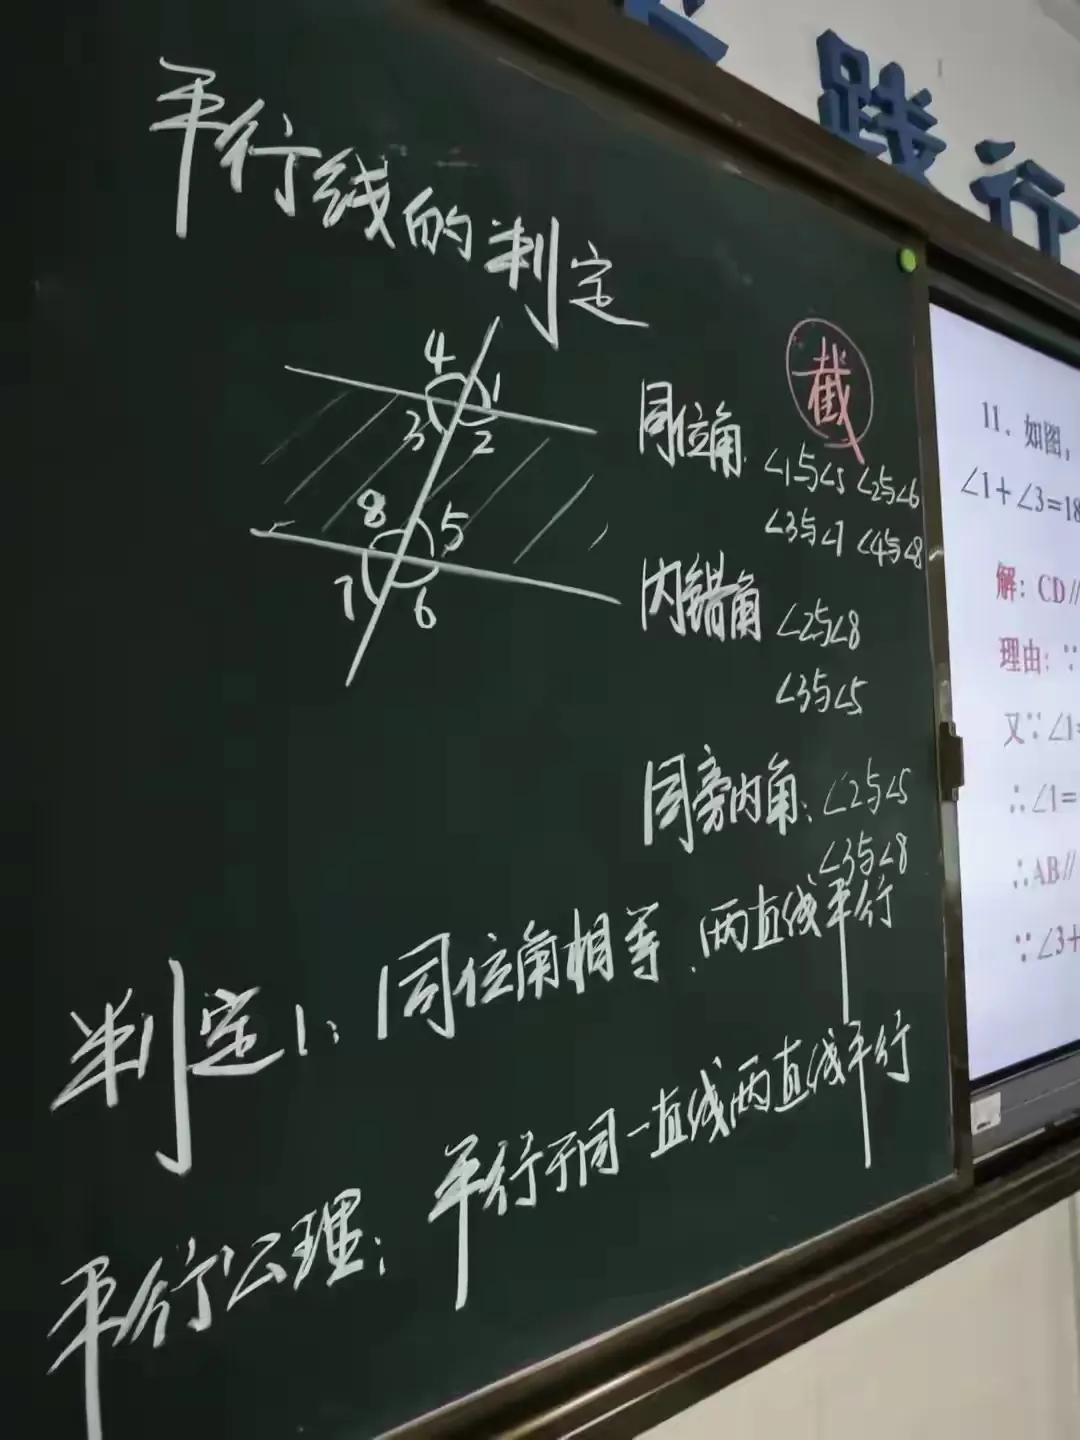 践行
平行线的判定
截
4
1
3
2
8
5
7
6
同位角 ∠1与∠5 ∠2与∠6
∠3与∠7 ∠4与∠8
内错角 ∠2与∠8
∠3与∠5
同旁内角: ∠2与∠5
∠3与∠8
判定1: 同位角相等、两直线平行
平行公理: 平行于同一直线两直线平行
11. 如图,
∠1+∠3=18
解: CD∥
理由: ∵
又∵∠1=
∴∠1=
∴AB∥
∵∠3+